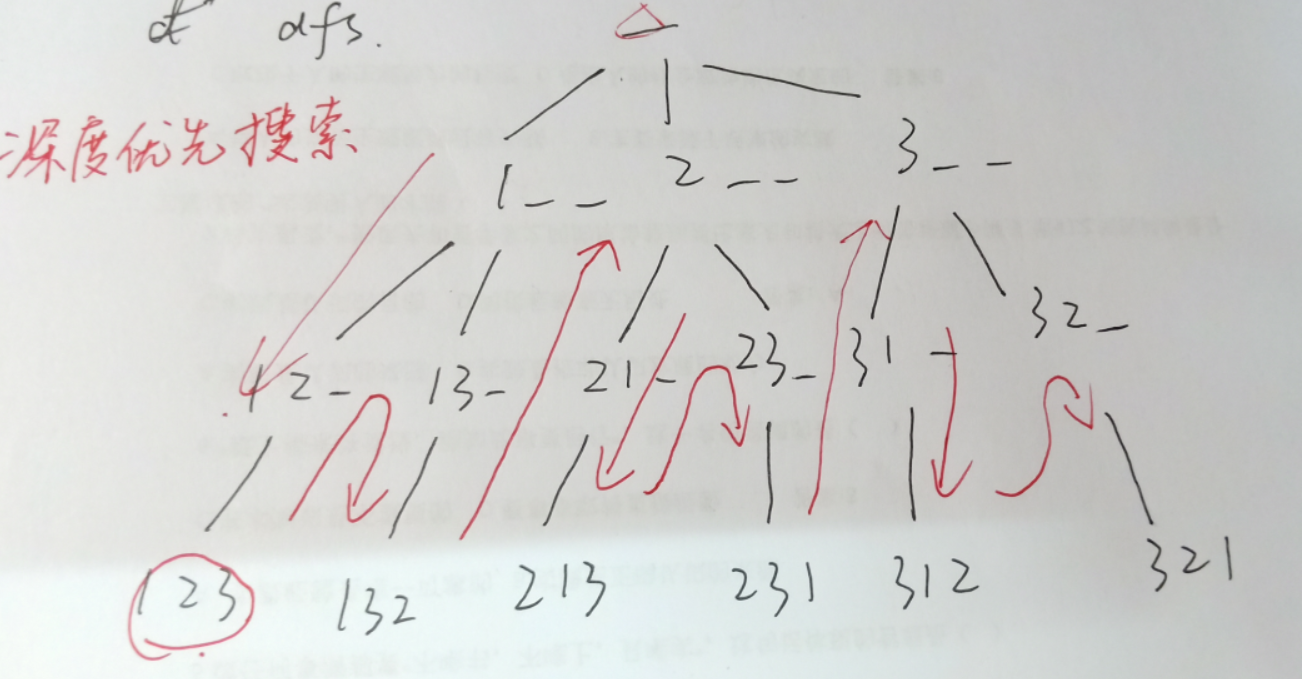 dfs.
深度优先搜索
1 _ _ 2 _ _ 3 _ _
12 _ 13 _ 21 _ 23 _ 31 _ 32 _
123 132 213 231 312 321